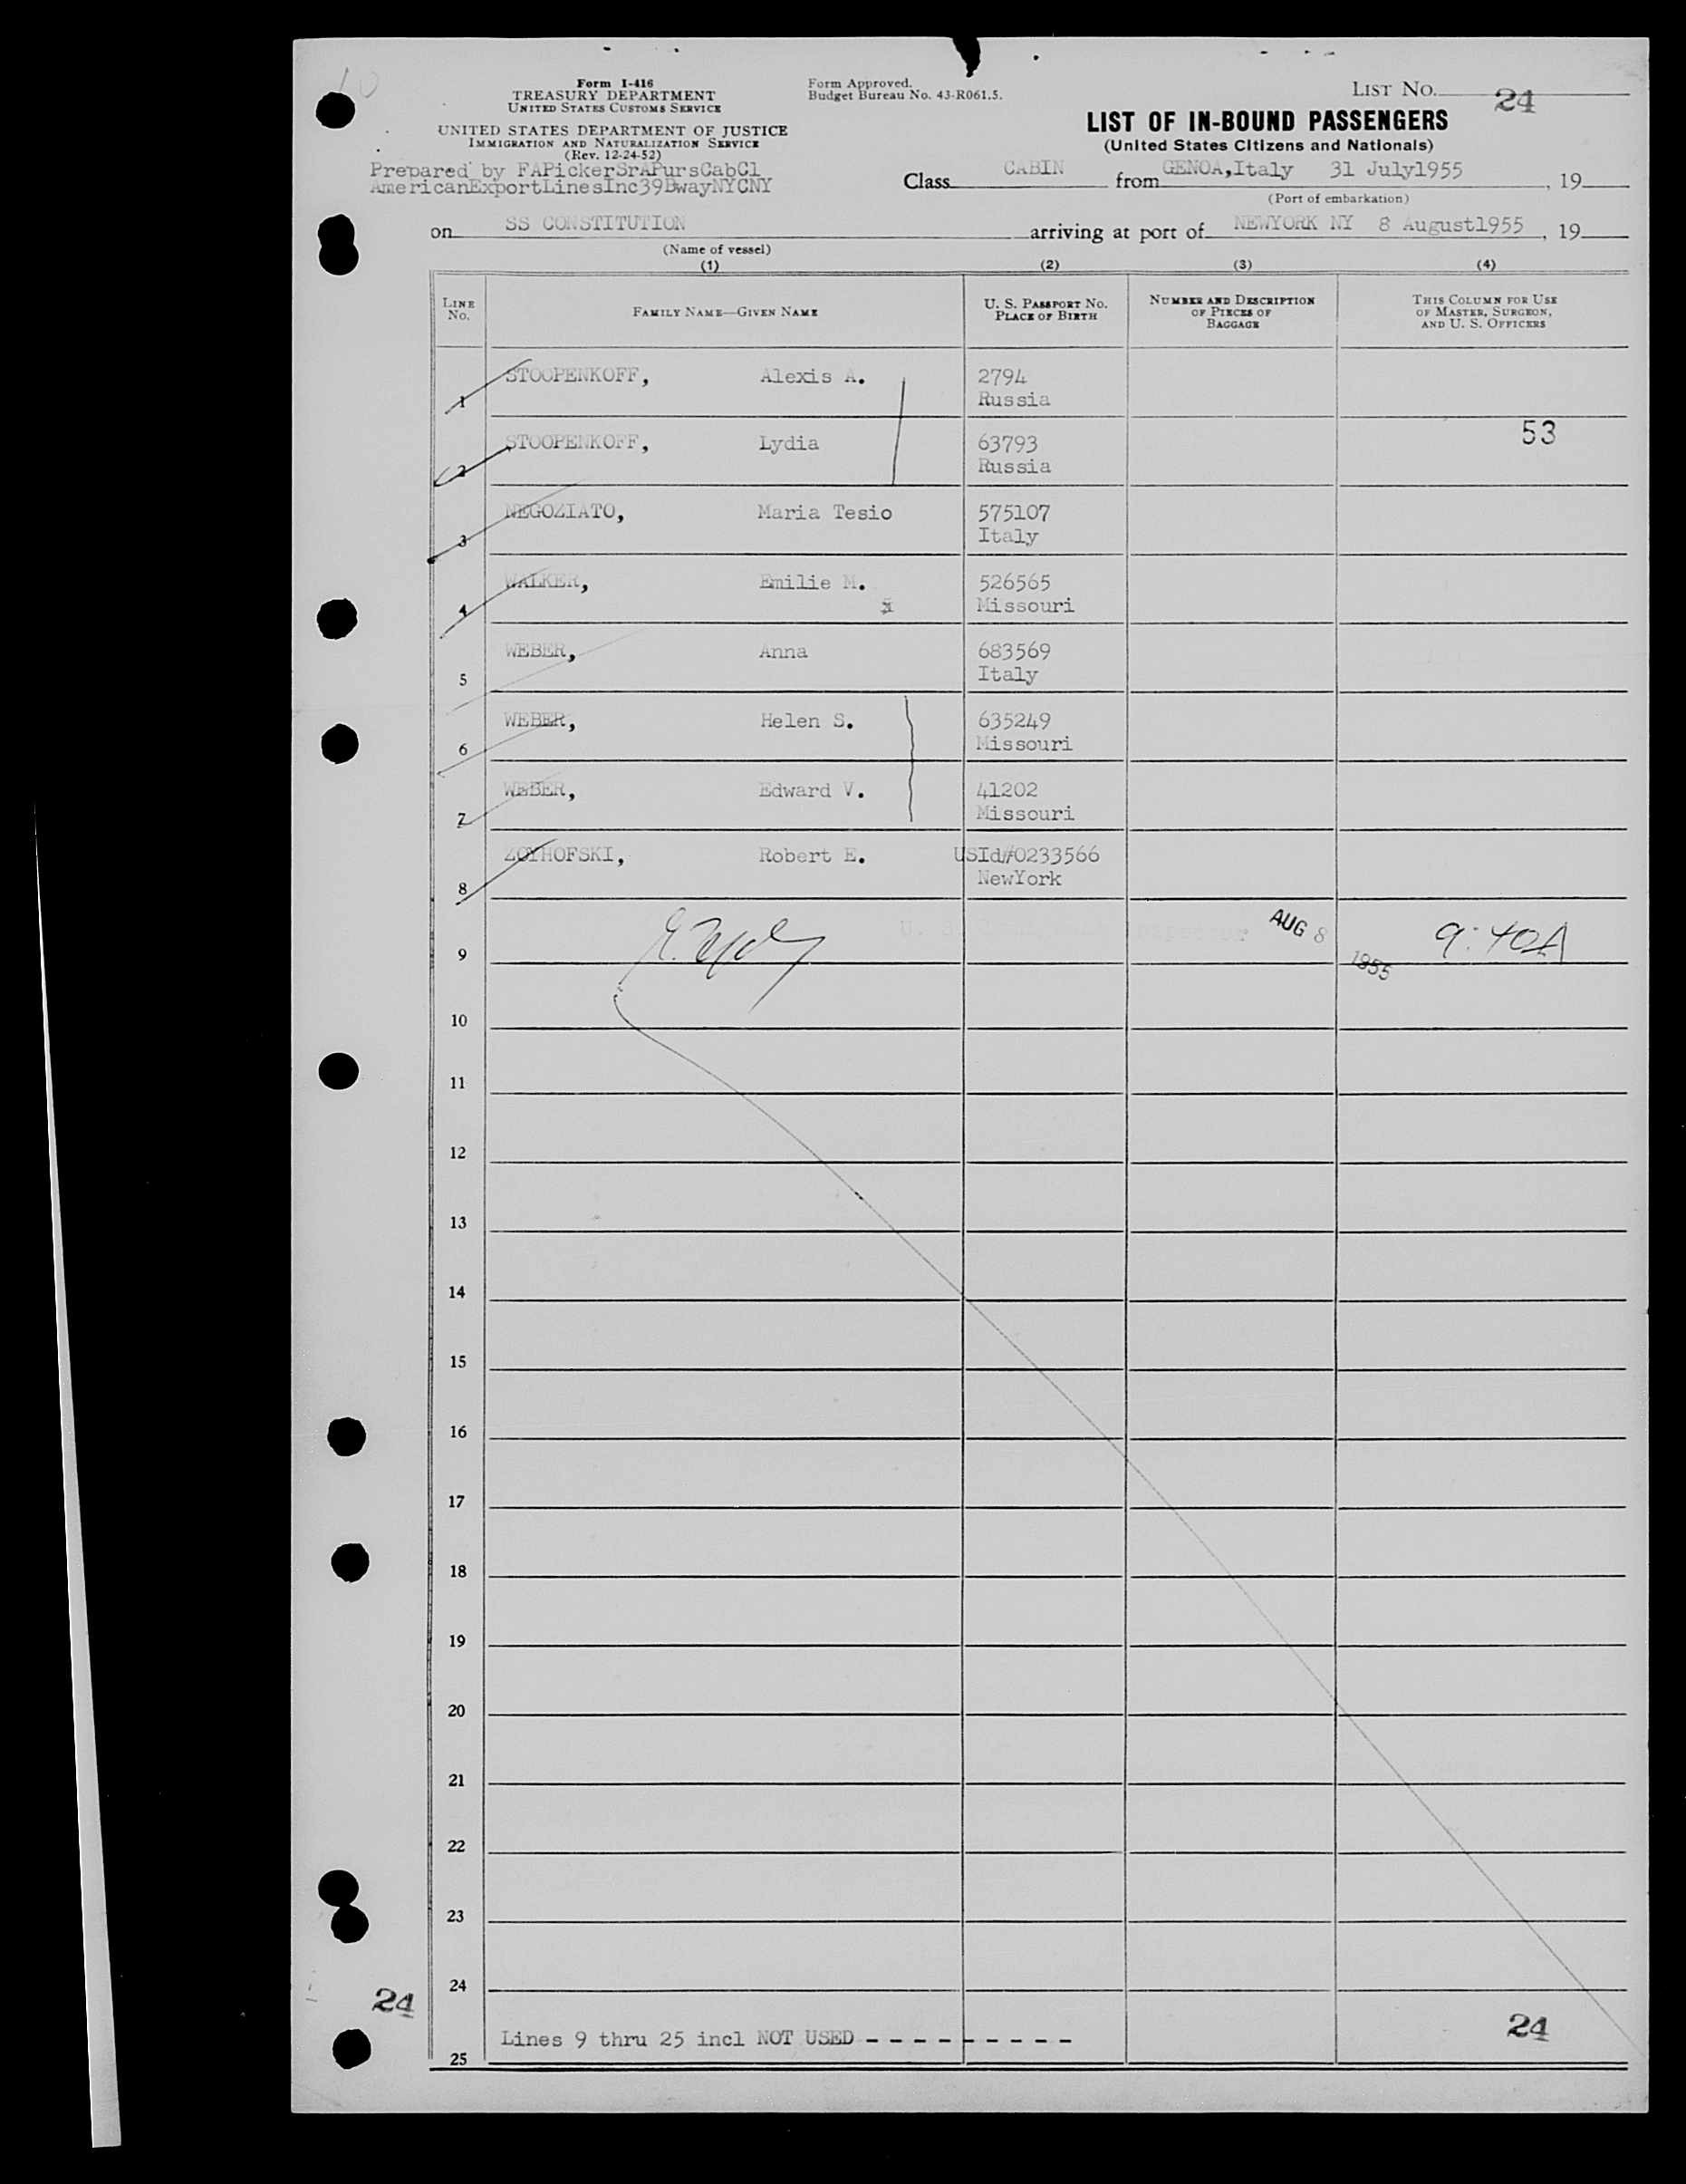 Form I-416
TREASURY DEPARTMENT
UNITED STATES CUSTOMS SERVICE
UNITED STATES DEPARTMENT OF JUSTICE
IMMIGRATION AND NATURALIZATION SERVICE
(Rev. 12-24-52)
Prepared by FAPickerSrAPursCabCl
AmericanExportLinesInc39BwayNYCNY
Form Approved.
Budget Bureau No. 43-R061.5.
LIST NO. 24
LIST OF IN-BOUND PASSENGERS
(United States Citizens and Nationals)
Class CABIN from GENOA,Italy 31 July1955, 19
(Port of embarkation)
on SS CONSTITUTION arriving at port of NEWYORK NY 8 August1955, 19
(Name of vessel)
(1) (2) (3) (4)
LINE NO. FAMILY NAME—GIVEN NAME U. S. PASSPORT NO. PLACE OF BIRTH NUMBER AND DESCRIPTION OF PIECES OF BAGGAGE THIS COLUMN FOR USE OF MASTER, SURGEON, AND U. S. OFFICERS
STOOPENKOFF, Alexis A. 2794
1 Russia
53
STOOPENKOFF, Lydia 63793
2 Russia
NEGOZIATO, Maria Tesio 575107
3 Italy
WALKER, Emilie M. 526565
4 Missouri
WEBER, Anna 683569
5 Italy
WEBER, Helen S. 635249
6 Missouri
WEBER, Edward V. 41202
7 Missouri
ZOYHOFSKI, Robert E. USId#0233566
8 NewYork
9 AUG 8 1955 9:40A
10
11
12
13
14
15
16
17
18
19
20
21
22
23
24
24
24
Lines 9 thru 25 incl NOT USED - - - - - - - - -
25